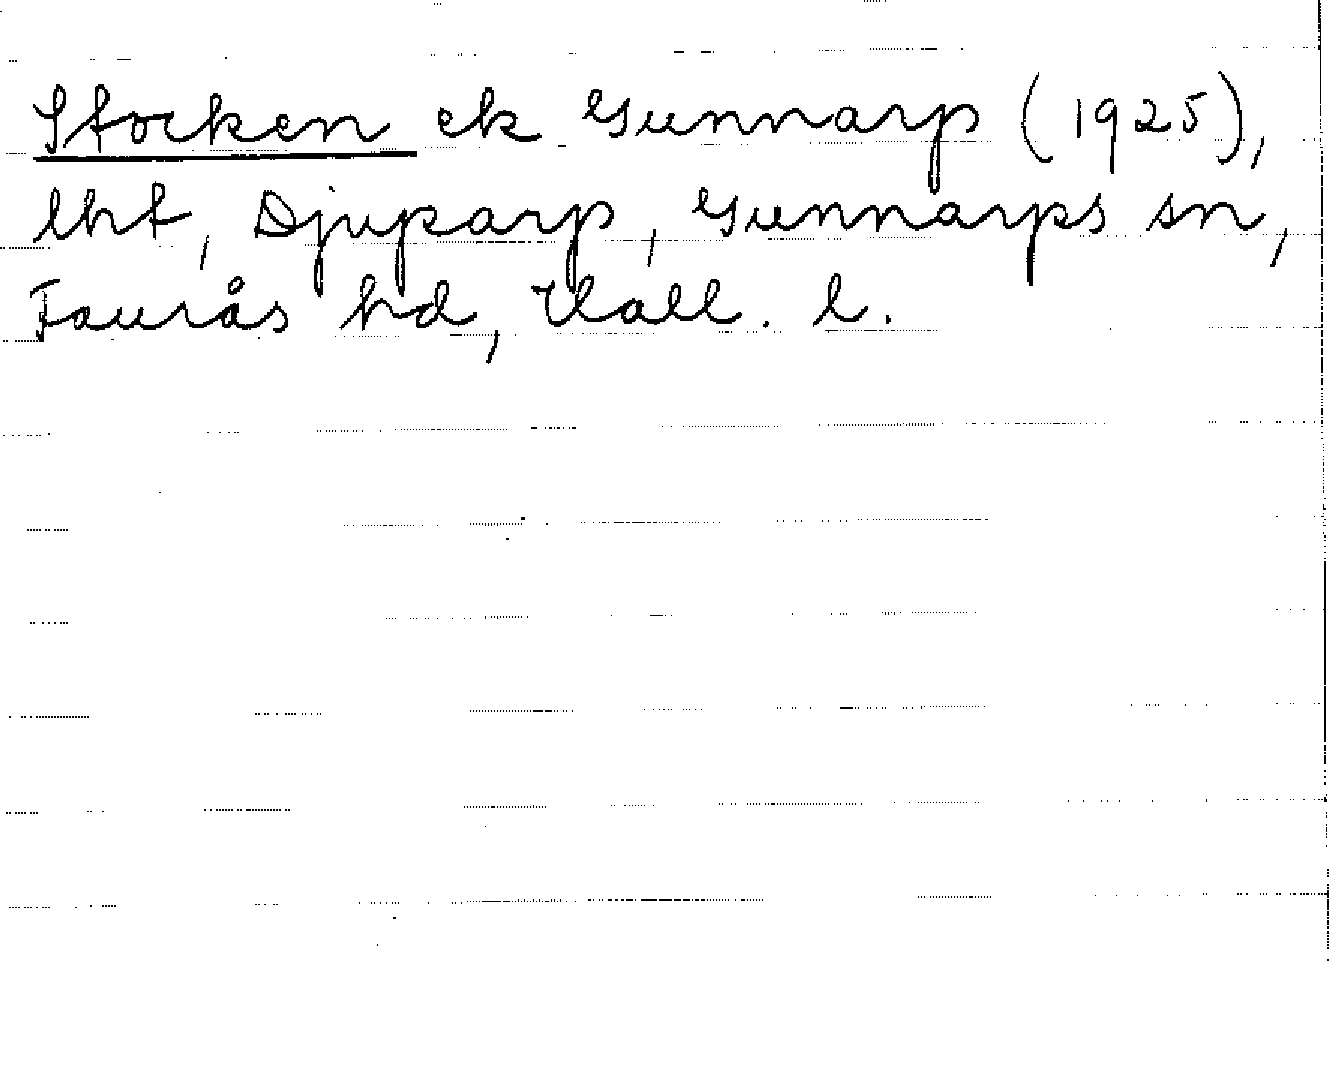 Stocken ek Gunnarp (1925),
lht, Djuparp, Gunnarps sn,
Faurås hd, Hall. l.